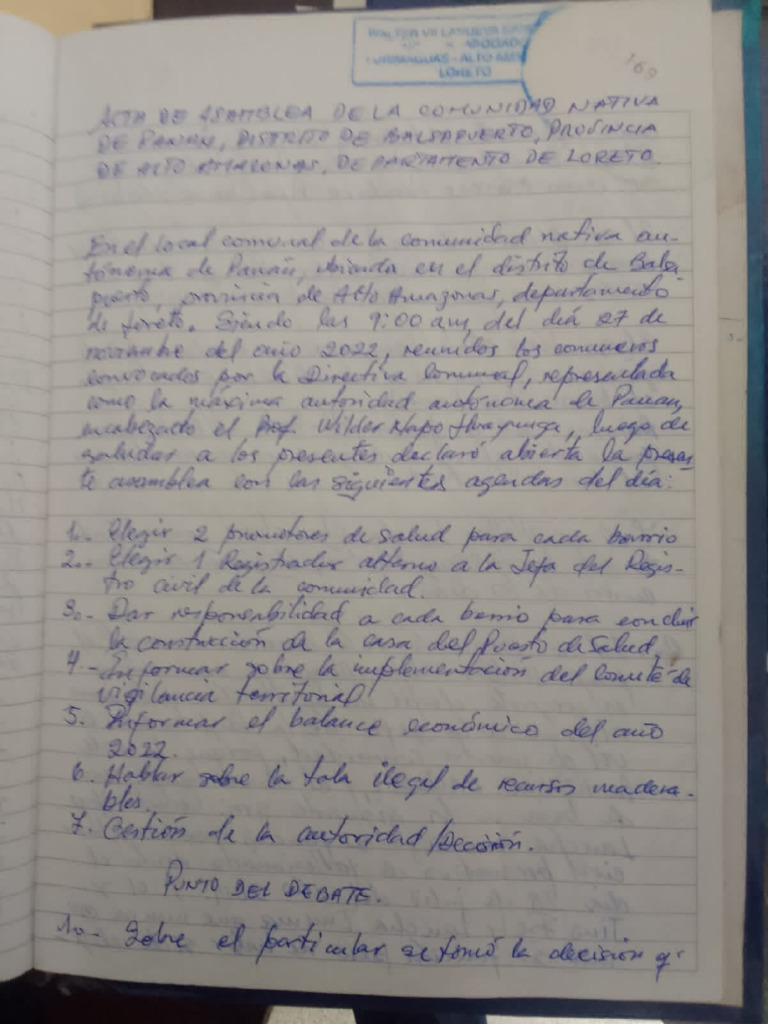 WALTER VILLANUEVA
ABOGADO
YURIMAGUAS - ALTO AM
LORETO
169
ACTA DE ASAMBLEA DE LA COMUNIDAD NATIVA
DE PANAN, DISTRITO DE BALSAPUERTO, PROVINCIA
DE ALTO AMAZONAS, DEPARTAMENTO DE LORETO.
En el local comunal de la comunidad nativa au-
tónoma de Panán, ubicada en el distrito de Balsa
puerto, provincia de Alto Amazonas, departamento
de Loreto. Siendo las 9:00 am, del día 27 de
noviembre del año 2022, reunidos los comuneros
convocados por la Directiva Comunal, representada
como la máxima autoridad autónoma de Panan,
encabezado el Prof. Wilder Napo, luego de
saludar a los presentes declaró abierta la presen
te asamblea con las siguientes agendas del día:
1.- Elegir 2 promotores de salud para cada barrio
2.- Elegir 1 Registrador alterno a la Jefa del Regis-
tro civil de la comunidad.
3.- Dar responsabilidad a cada barrio para concluir
la construcción de la casa del Puesto de Salud.
4.- Informar sobre la implementación del Comité de
vigilancia territorial
5. Informar el balance económico del año
2022.
6. Hablar sobre la tala ilegal de recursos madera-
bles.
7. Gestión de la autoridad/Decisión.
PUNTO DEL DEBATE.
1o.- Sobre el particular se tomó la decisión q'